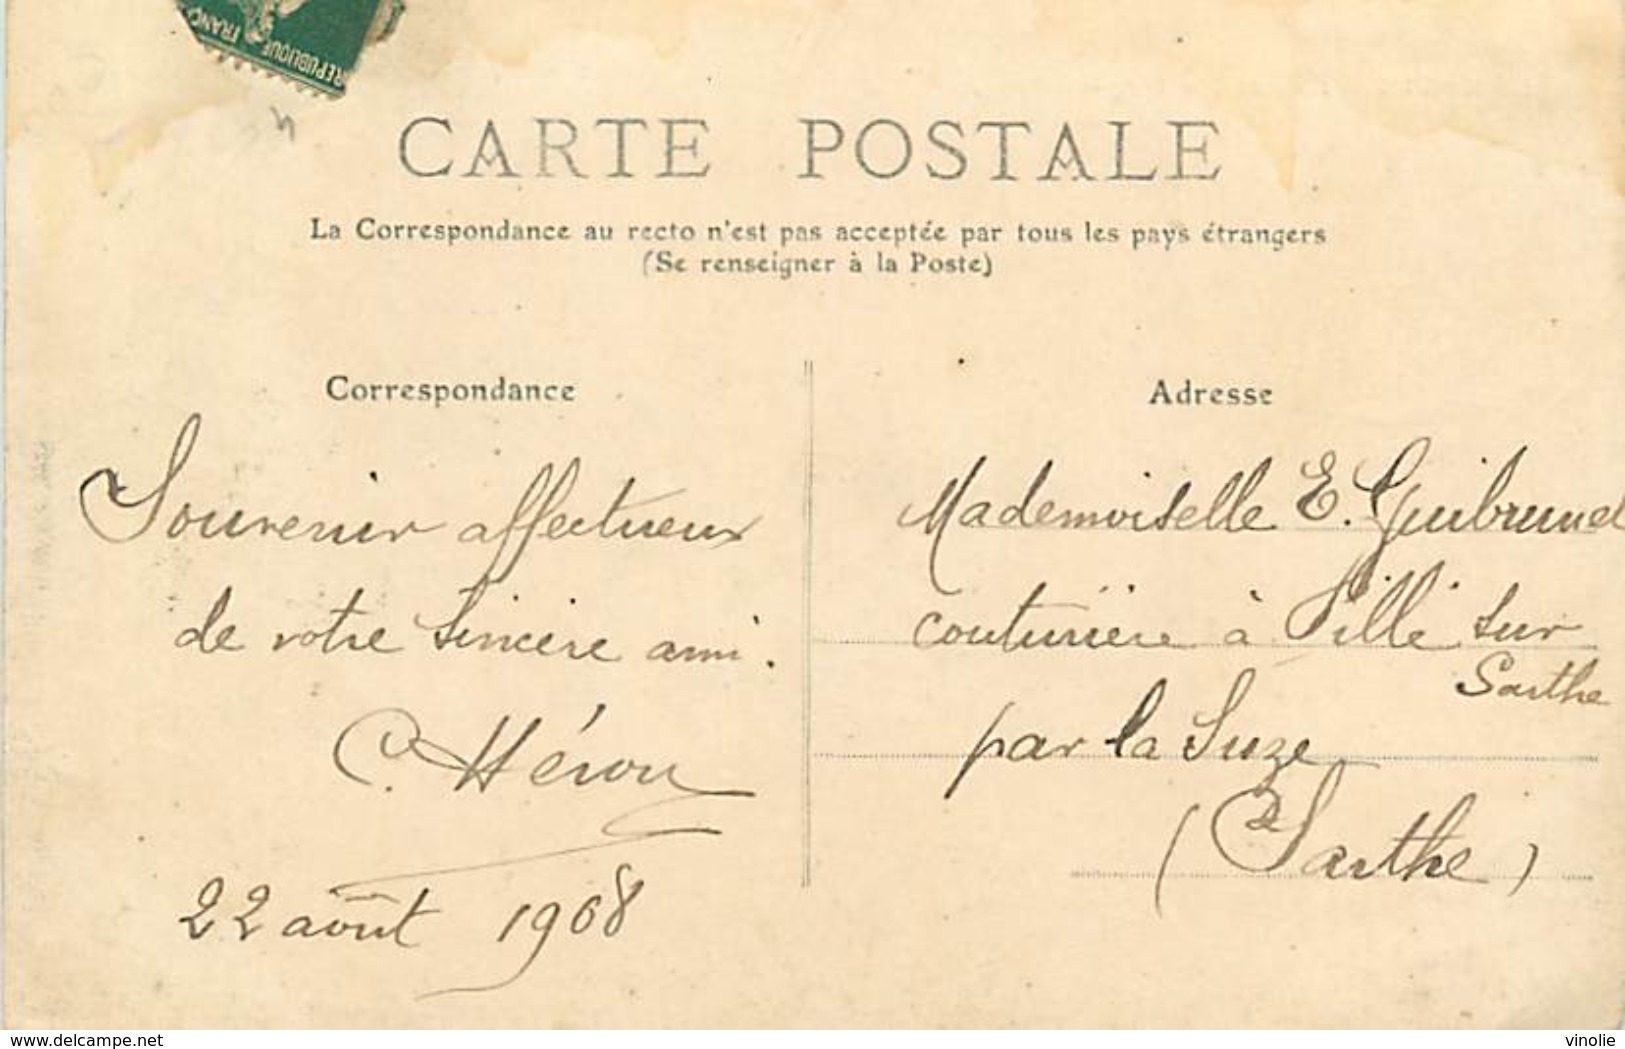 RÉPUBLIQUE FRANC
CARTE POSTALE
La Correspondance au recto n'est pas acceptée par tous les pays étrangers
(Se renseigner à la Poste)
Correspondance
Souvenir affectueux
de votre sincère ami.
C. Héron
22 août 1908
Adresse
Mademoiselle E. Guibrunel
couturière à Fillé sur
Sarthe
par la Suze
(Sarthe)
delcampe.net
vinolie